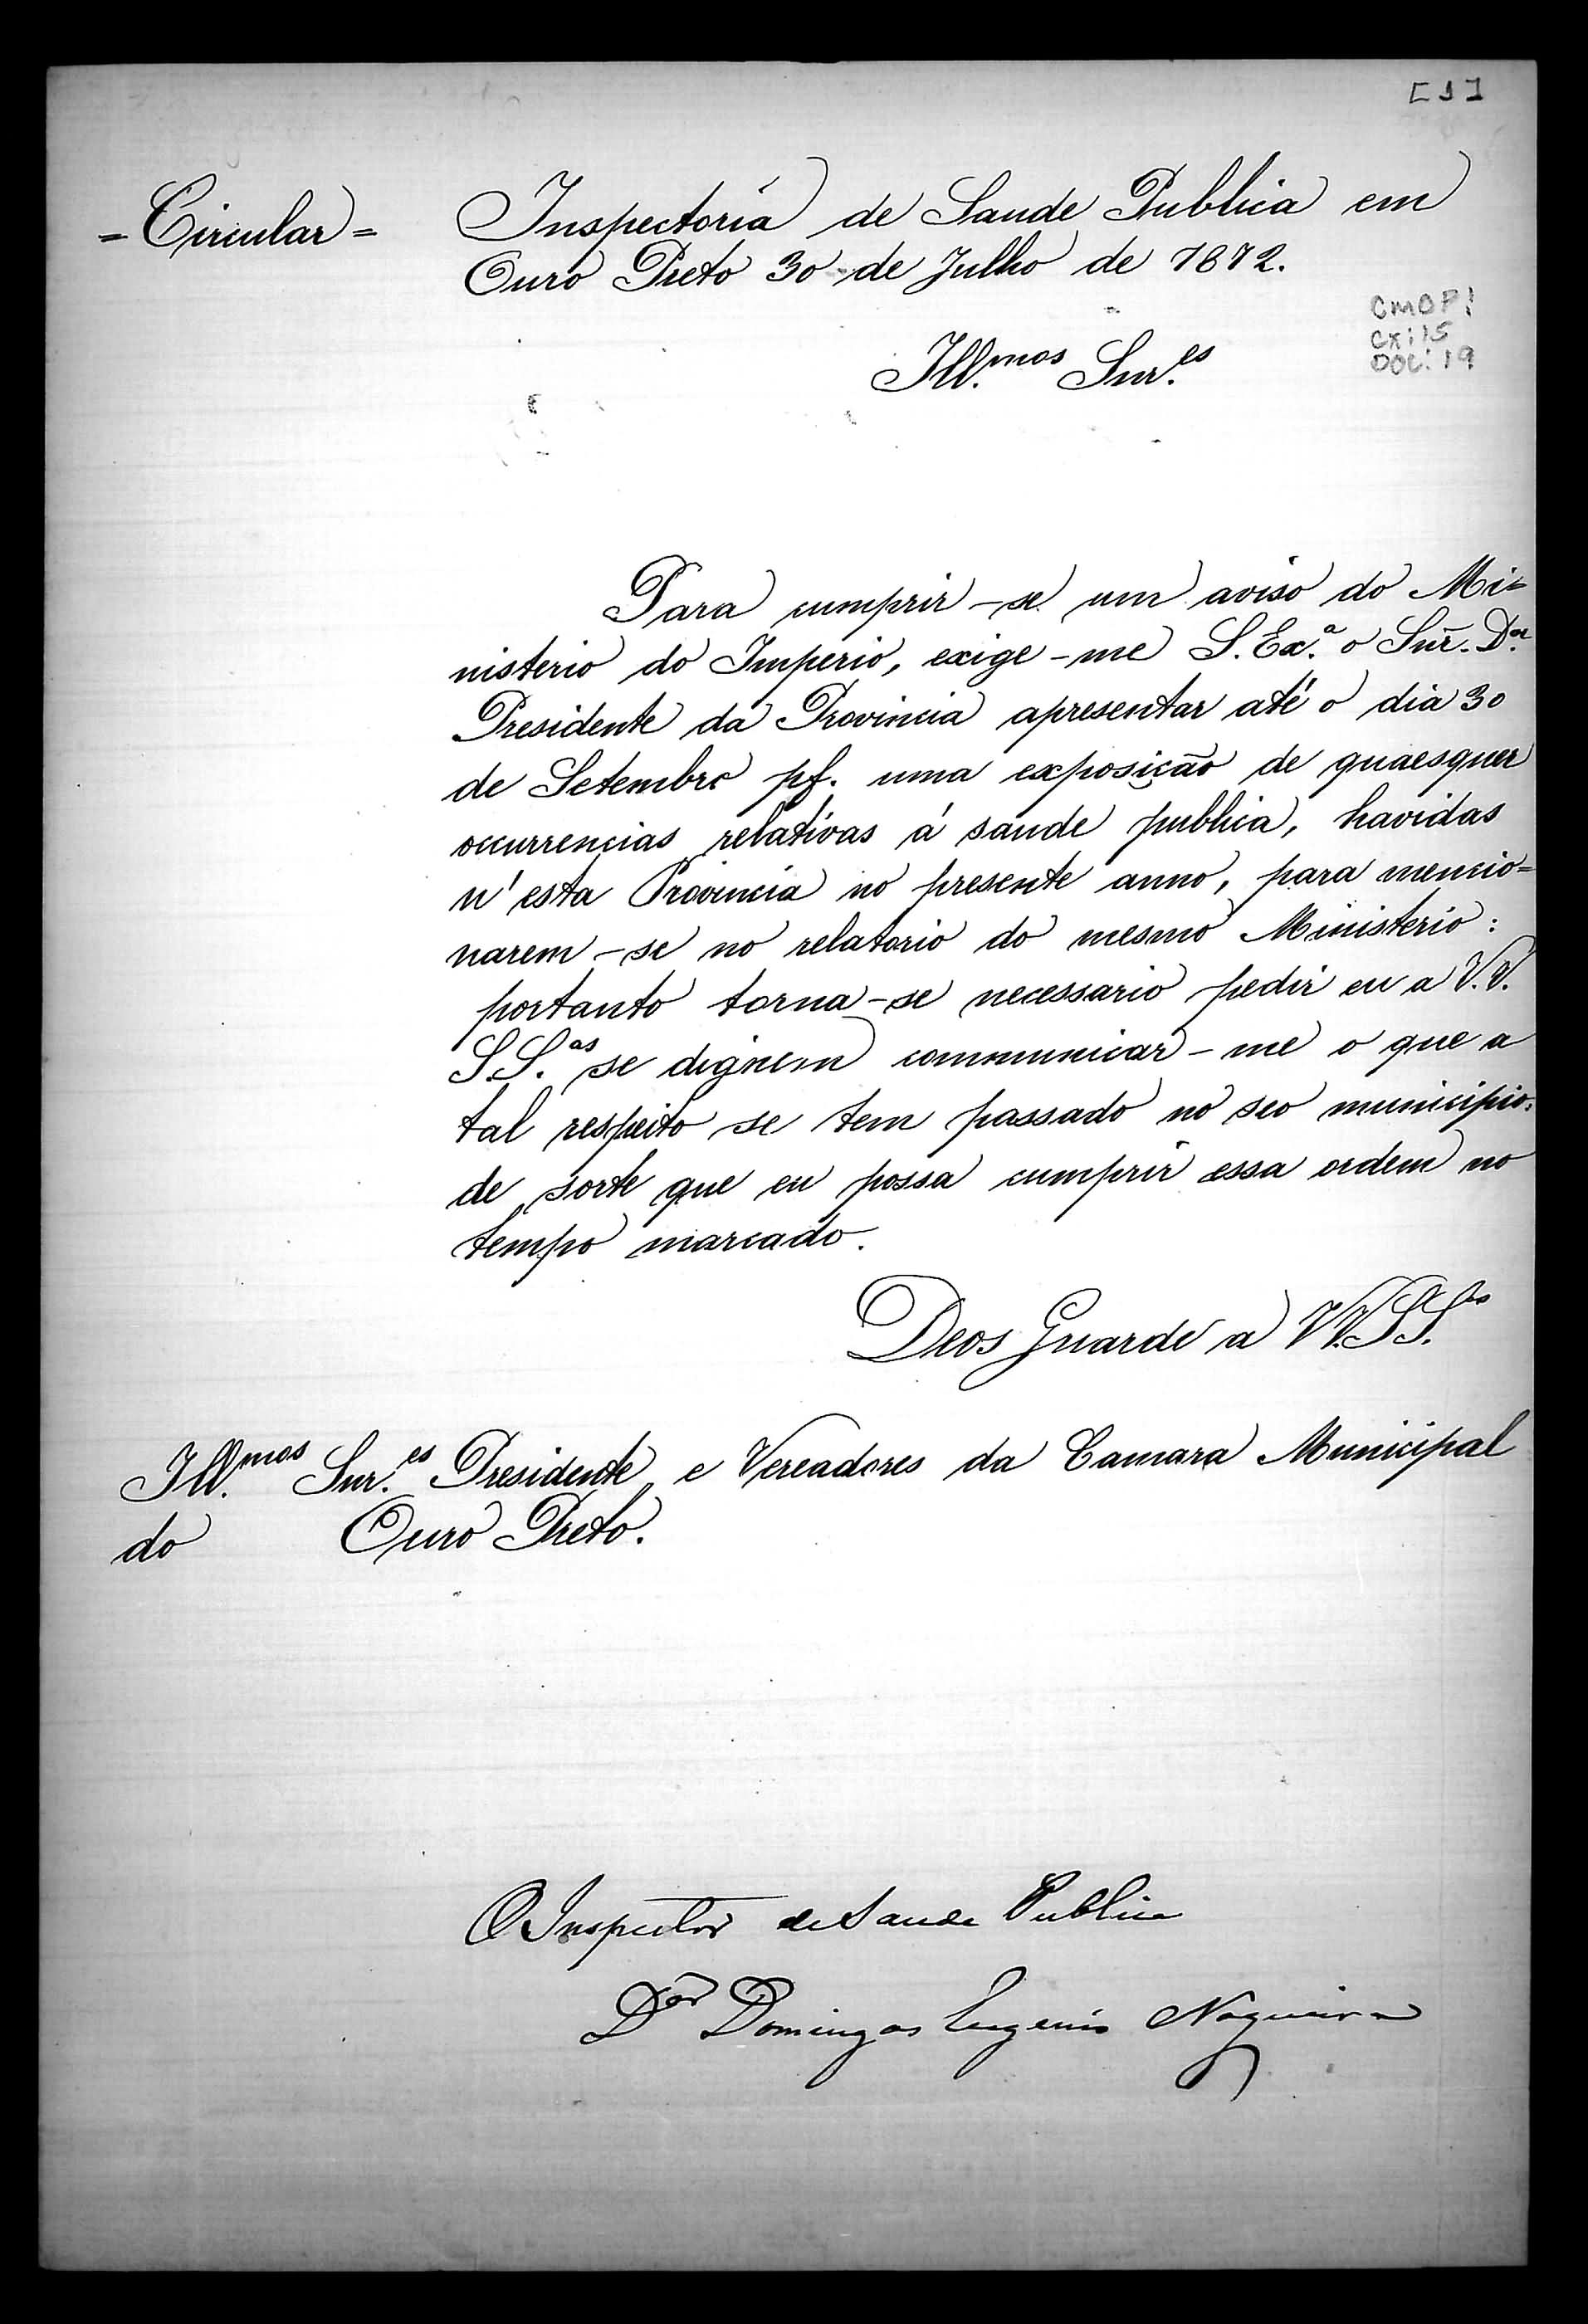 [1]
=Circular= Inspectoria de Saude Publica em
Ouro Preto 30 de Julho de 1872.
CMOP!
CX:15
DOC:19
Ill.mos Snr.es
Para cumprir-se um aviso do Mi=
nisterio do Imperio, exige-me S. Ex.a o Snr. Dor.
Presidente da Provincia apresentar até o dia 30
de Setembro pf. uma exposição de quaesquer
occurrencias relativas á saude publica, havidas
n'esta Provincia no presente anno, para mencio=
narem-se no relatorio do mesmo Ministerio:
portanto torna-se necessario pedir eu a V.V.
S.S.as se dignem communicar-me o que a
tal respeito se tem passado no seo municipio:
de sorte que eu possa cumprir essa ordem no
tempo marcado.
Deos Guarde a VV.SS.as
Ill.mos Snr.es Presidente e Vereadores da Camara Municipal
do Ouro Preto.
O Inspector de Saude Publica
Dor Domingos Eugenio Nogueira